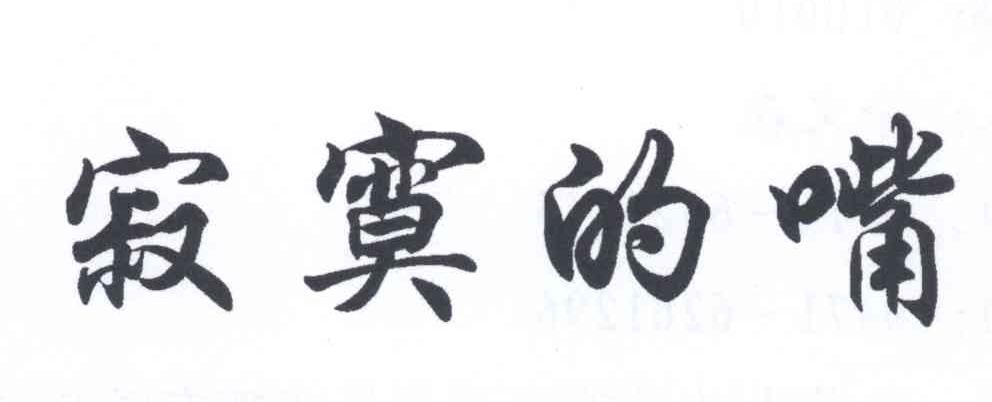 寂寞的嘴